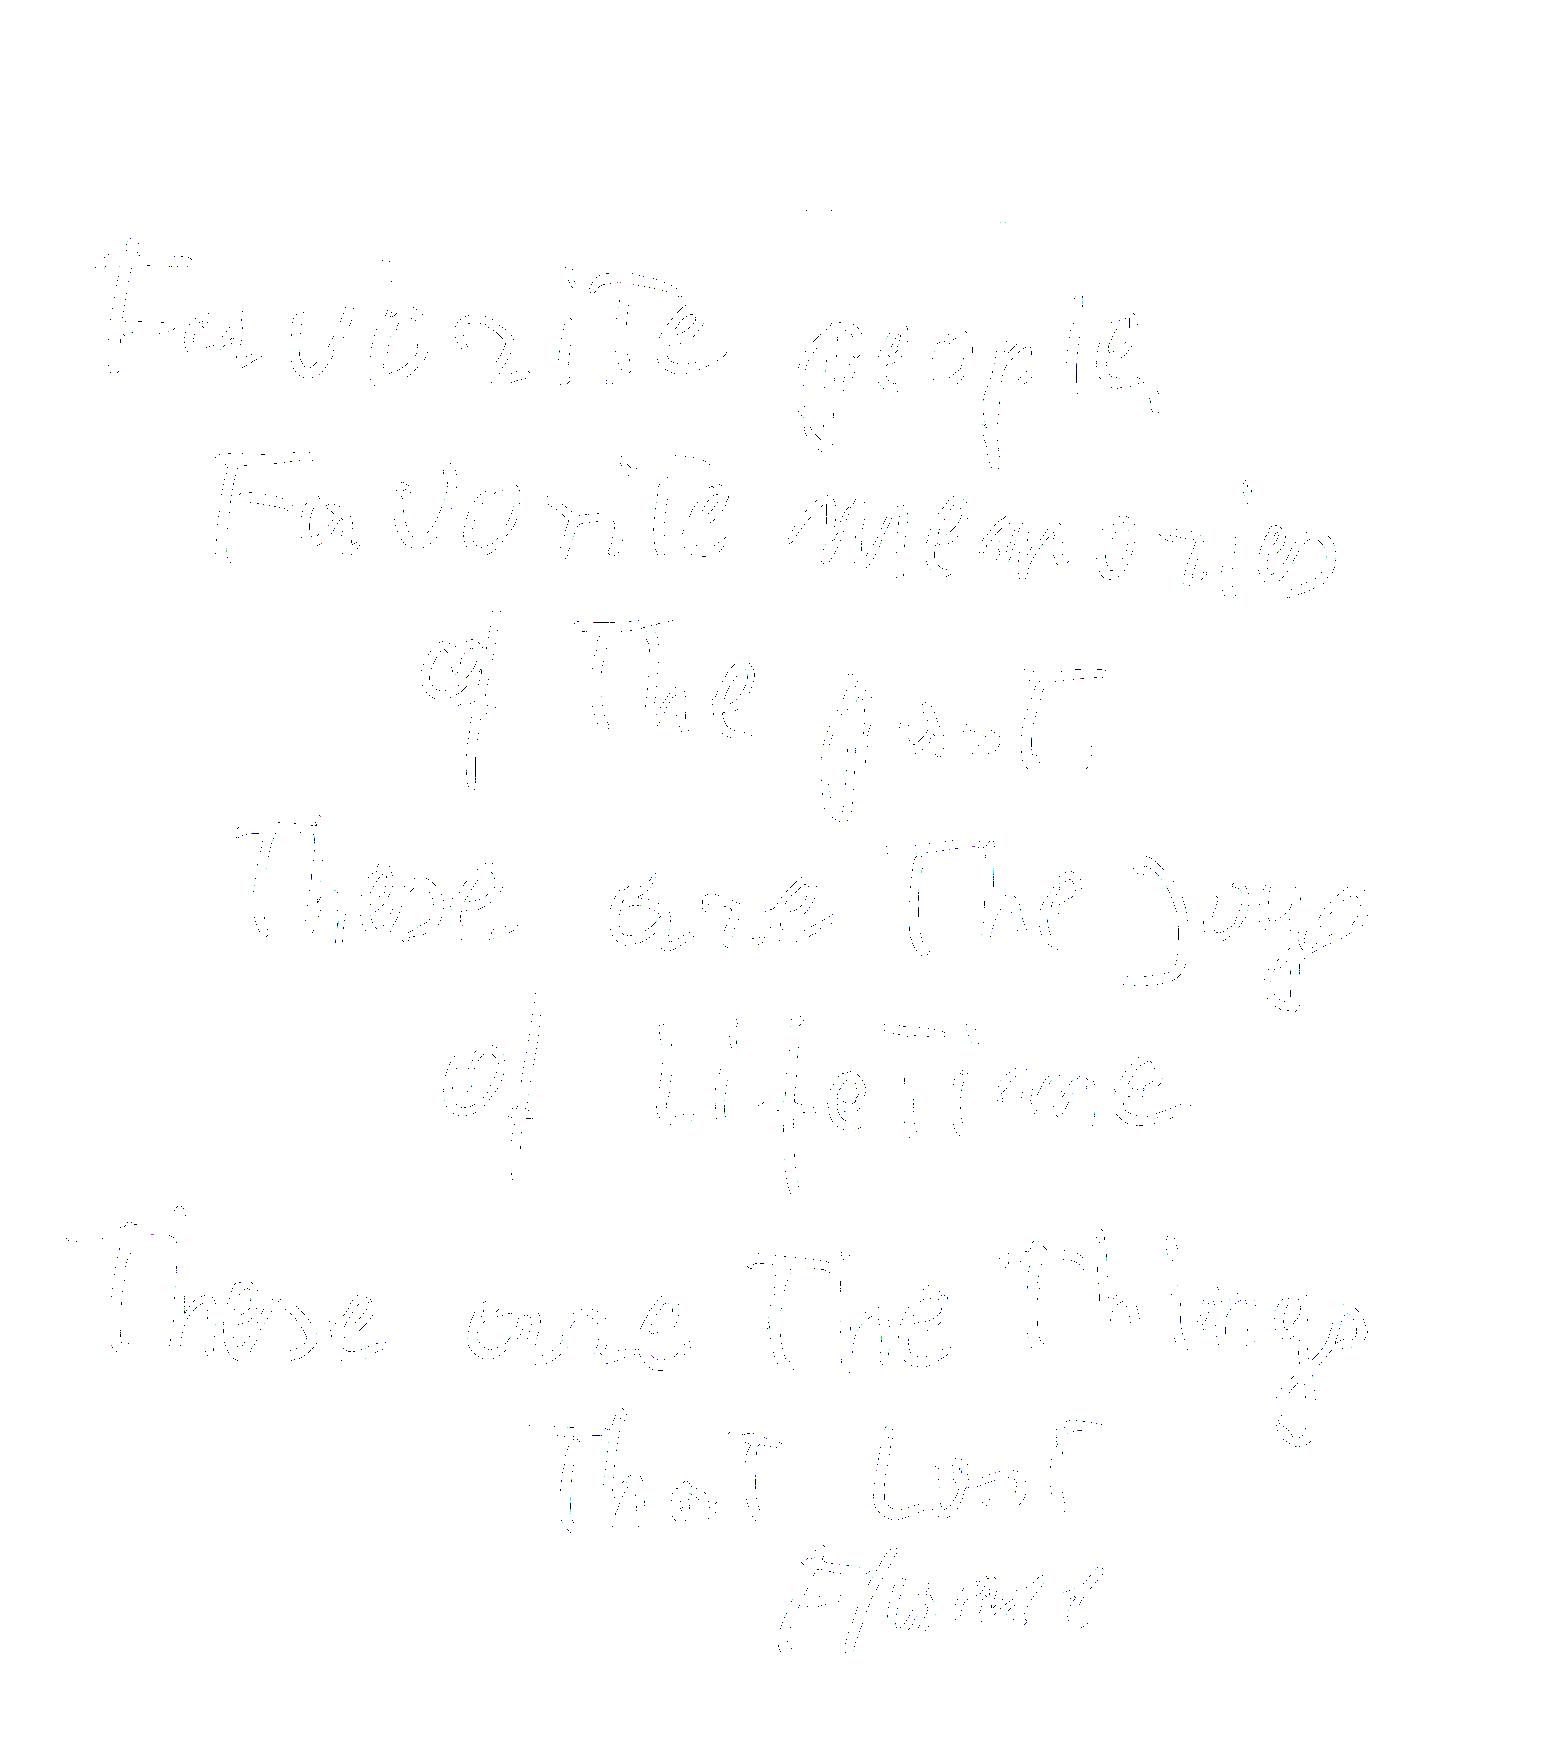 Favorite people,
Favorite memories
of The past
These are The Joys
of Lifetime
These are The Things
That Last